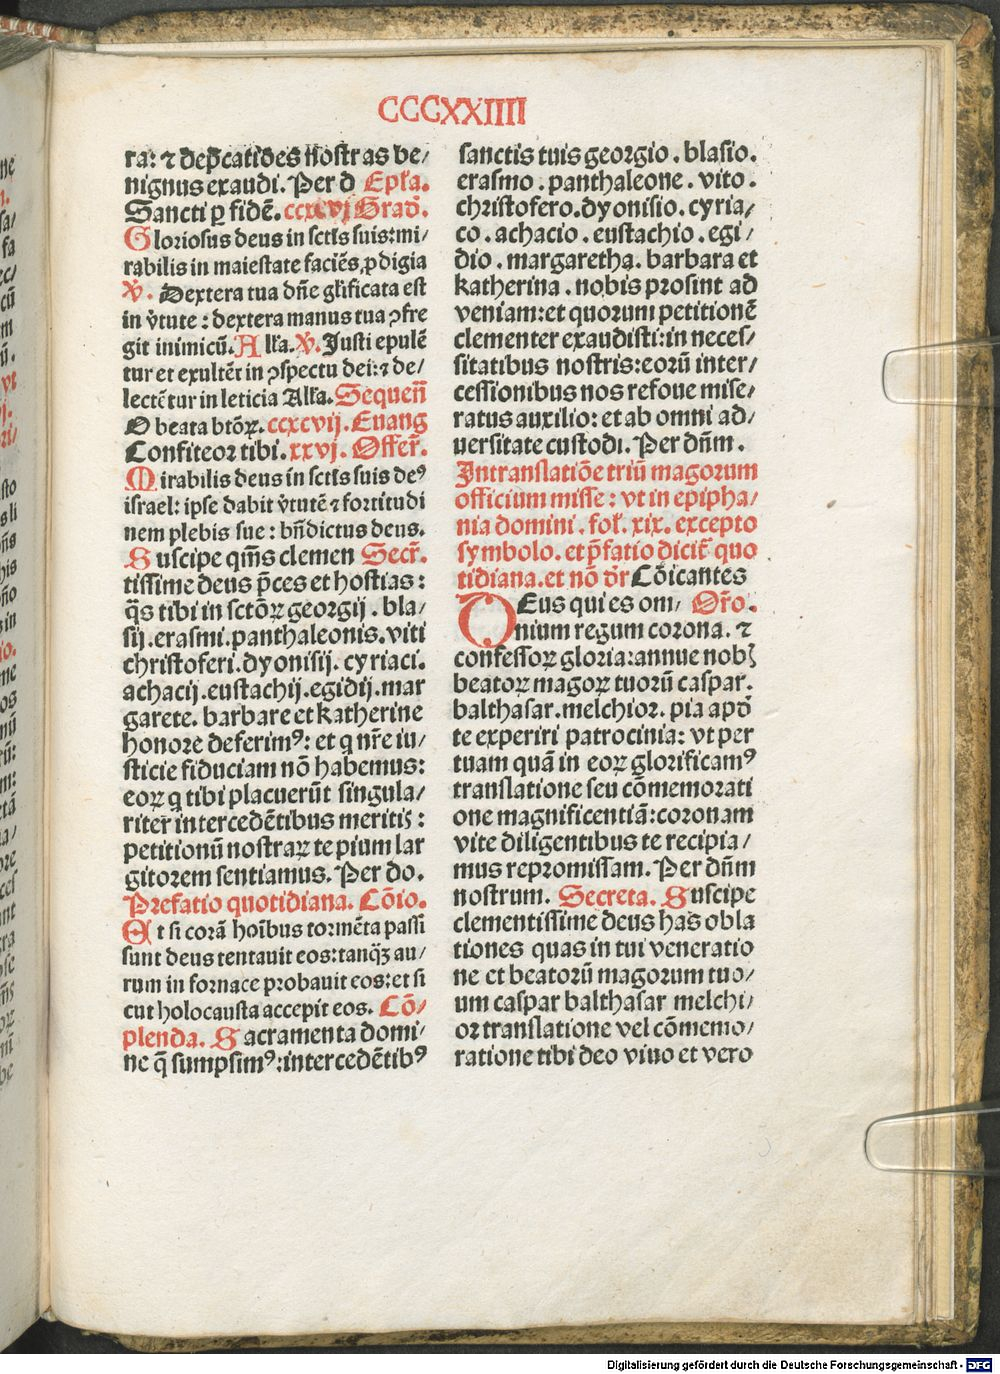 CCCXXIIII
ra: ⁊ dep̄catiões nostras be/
nignus exaudi. Per d Epl̄a.
Sancti ꝑ fidē. ccxcvj Grad̄.
Gloriosus deus in sctīs suis: mi/
rabilis in maiestate faciēs ꝓdigia
℣. Dextera tua dn̄e gl̄ificata est
in v̄tute: dextera manus tua ꝯfre
git inimicū. All̄a. ℣. Justi epulē
tur et exultēt in ꝯspectu dei: ⁊ de/
lectētur in leticia All̄a. Sequen̄
O beata btōꝝ. ccxcvij. Euang
Confiteor tibi. xxvj. Offer̄.
Mirabilis deus in sctīs suis deꝰ
israel: ipse dabit v̄tutē ⁊ fortitudi
nem plebis sue: bn̄dictus deus.
Suscipe qm̄s clemen Secr̄.
tissime deus p̄ces et hostias:
q̄s tibi in sctōꝝ georgij. bla/
sij. erasmi. panthaleonis. viti
christoferi. dyonisij. cyriaci.
achacij. eustachij. egidij. mar
garete. barbare et katherine
honore deferimꝰ: et q nr̄e iu/
sticie fiduciam nō habemus:
eoꝝ q tibi placuerūt singula/
riter intercedētibus meritis:
petitionū nostraꝝ te pium lar
gitorem sentiamus. Per do.
Prefatio quotidiana. Cōio.
Et si corā hoībus tormēta passi
sunt deus tentauit eos: tanqꝫ au/
rum in fornace probauit eos: et si
cut holocausta accepit eos. Cō/
plenda. Sacramenta domi/
ne q̄ sumpsimꝰ: intercedētibꝰ
sanctis tuis georgio. blasio.
erasmo. panthaleone. vito.
christofero. dyonisio. cyria/
co. achacio. eustachio. egi/
dio. margaretha. barbara et
katherina. nobis prosint ad
veniam: et quorum petitionē
clementer exaudisti: in neces/
sitatibus nostris: eorū inter/
cessionibus nos refoue mise/
ratus auxilio: et ab omni ad/
uersitate custodi. Per dn̄m.
In translatiōe triū magorum
officium misse: vt in epipha/
nia domini. fol̄. xix. excepto
symbolo. et p̄fatio dicit̄ quo
tidiana. et nō dr̄ Cōicantes
DEus qui es om/ Or̄o.
nium regum corona. ⁊
confessoꝝ gloria: annue nobꝫ
beatoꝝ magoꝝ tuorū caspar.
balthasar. melchior. pia apd̄
te experiri patrocinia: vt per
tuam quā in eoꝝ glorificamꝰ
translatione seu cōmemorati
one magnificentiā: coronam
vite diligentibus te recipia/
mus repromissam. Per dn̄m
nostrum. Secreta. Suscipe
clementissime deus has obla
tiones quas in tui veneratio
ne et beatorū magorum tuo/
um caspar balthasar melchi/
or translatione vel cōmemo/
ratione tibi deo viuo et vero
Digitalisierung gefördert durch die Deutsche Forschungsgemeinschaft - DFG